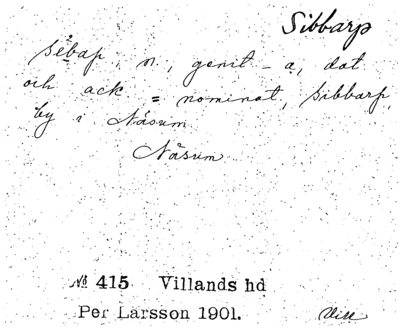 Sibbarp
sèbap, n, genit - a, dat
och ack = nominat, Sibbarp,
by i Näsum
Näsum
№ 415 Villands hd
Per Larsson 1901.
Vill